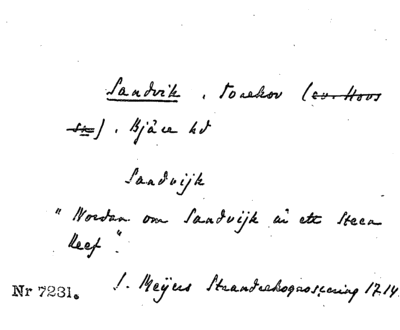 Sandvik, Torekov (ev. Hovs
sn), Bjäre hd
Sandvijk
"Nordan om Sandvijk är ett Steen
Reef".
S. Meijers Strandrekognoscering 1714
Nr 7231.